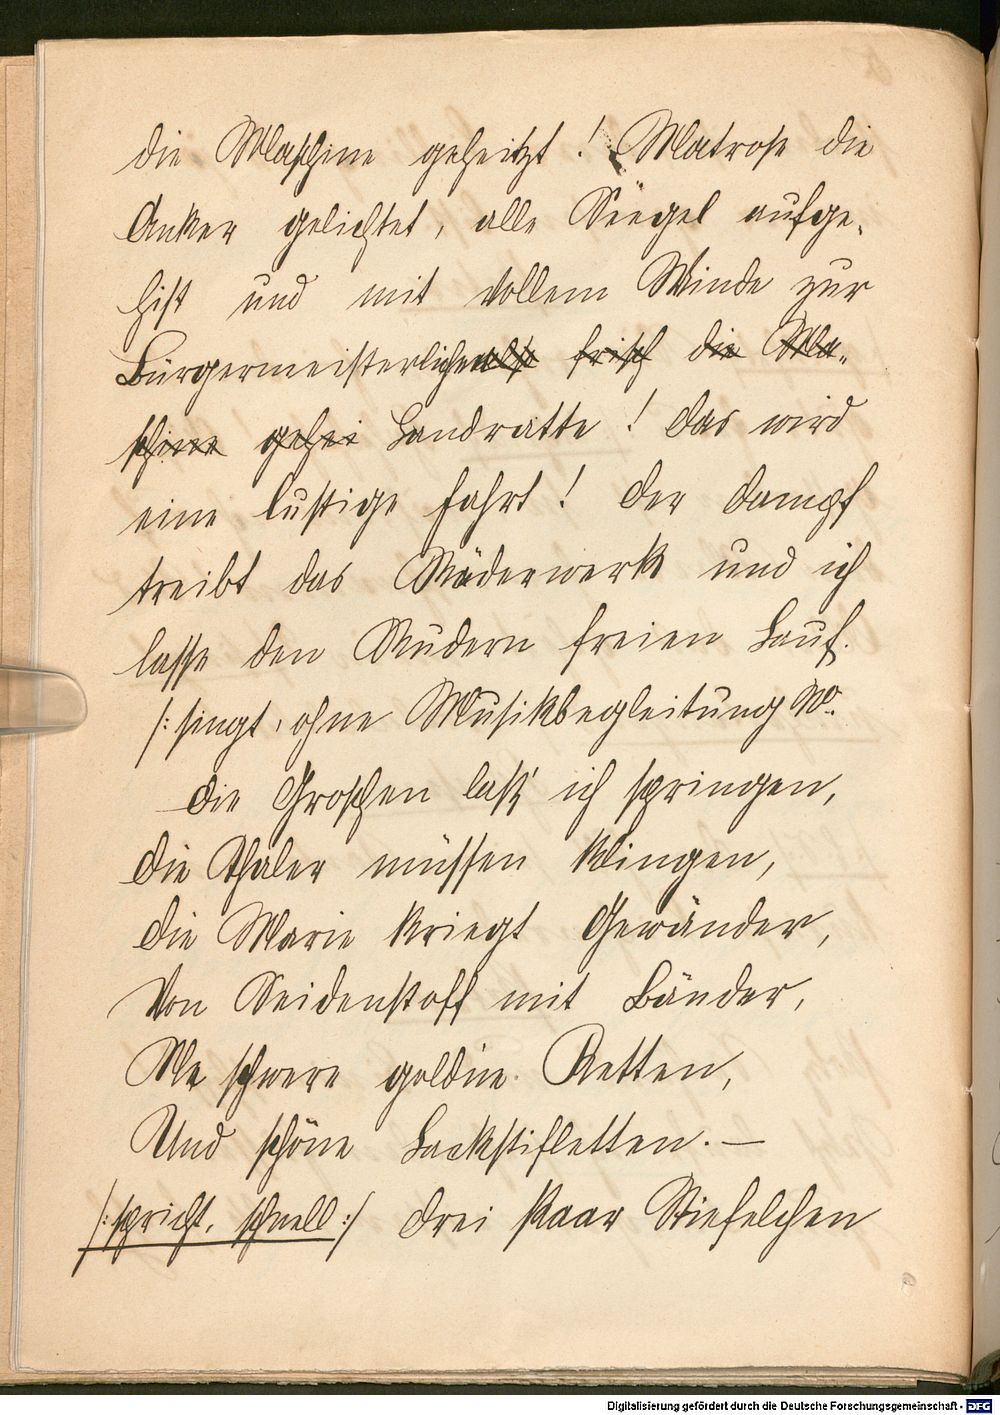 die Maschine geheitzt! Matrose die
Anker gelichtet, alle Seegel aufge-
hist und mit vollem Winde zur
Bürgermeisterlichen also frisch die Ma-
schine gehei Landratte! das wird
eine lustige Fahrt! Der Dampf
treibt das Räderwerk und ich
lasse den Rudern freien Lauf.
/: singt, ohne Musikbegleitung
Die Groschen laß' ich springen,
Die Thaler müssen klingen,
Die Marie kriegt Gewänder,
Von Seidenstoff mit Bänder,
schwere goldne Ketten,
Und schöne Lackstifletten. —
/: spricht, schnell :/ Drei Paar Stiefelchen
Digitalisierung gefördert durch die Deutsche Forschungsgemeinschaft - DFG